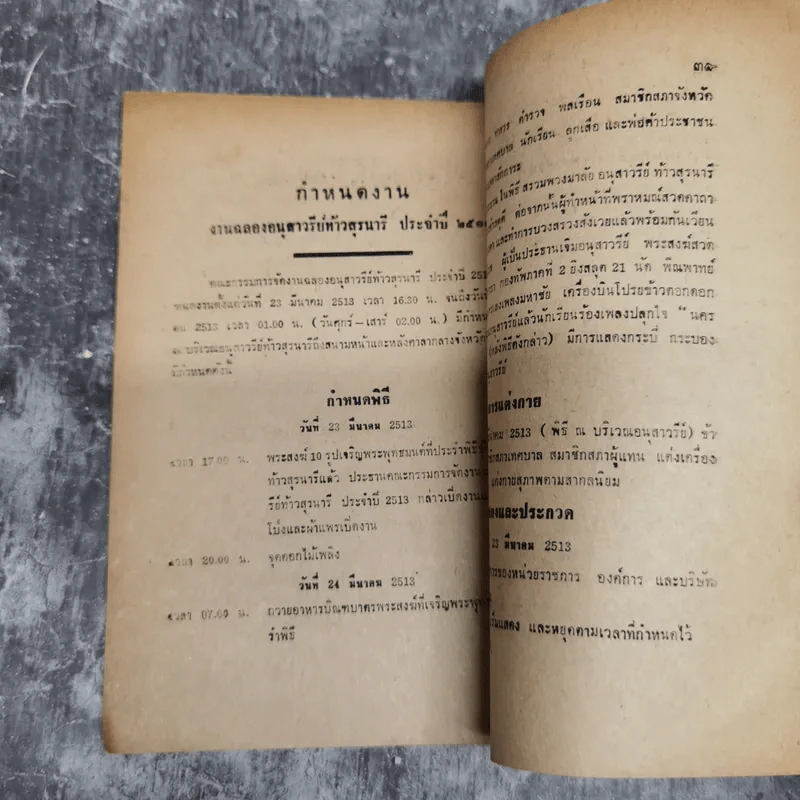 กำหนดงาน
งานฉลองอนุสาวรีย์ท้าวสุรนารี ประจำปี ๒๕๑
คณะกรรมการจัดงานฉลองอนุสาวรีย์ท้าวสุรนารี ประจำปี 251
งานตั้งแต่วันที่ 23 มีนาคม 2513 เวลา 16.30 น. จนถึงวันที่
คม 2513 เวลา 01.00 น. (วันศุกร์–เสาร์ 02.00 น.) มีกำหน
ณ บริเวณอนุสาวรีย์ท้าวสุรนารีถึงสนามหน้าและหลังศาลากลางจังหวัด
มีกำหนดดังนี้
กำหนดพิธี
วันที่ 23 มีนาคม 2513
เวลา 17.00 น. พระสงฆ์ 10 รูปเจริญพระพุทธมนต์ที่ประรำพิธี
ท้าวสุรนารีแล้ว ประธานคณะกรรมการจัดงาน
รีย์ท้าวสุรนารี ประจำปี 2513 กล่าวเปิดงาน
โป่งและผ้าแพรเปิดงาน
เวลา 20.00 น. จุดดอกไม้เพลิง
วันที่ 24 มีนาคม 2513
เวลา 07.00 น. ถวายอาหารบิณฑบาตรพระสงฆ์ที่เจริญพระพุท
รำพิธี
๓๑
ทหาร ตำรวจ พลเรือน สมาชิกสภาจังหวัด
เทศบาล นักเรียน ลูกเสือ และพ่อค้าประชาชน
ในพิธี สรวมพวงมาลัย อนุสาวรีย์ ท้าวสุรนารี
ต่อจากนั้นผู้ทำหน้าที่พราหมณ์สวดคาถา
และทำการบวงสรวงสังเวยแล้วพร้อมกันเวียน
ผู้เป็นประธานเจิมอนุสาวรีย์ พระสงฆ์สวด
กองทัพภาคที่ 2 ยิงสลุต 21 นัด พิณพาทย์
ลงเพลงมหาชัย เครื่องบินโปรยข้าวตอกดอก
นุสาวรีย์แล้วนักเรียนร้องเพลงปลุกใจ “นคร
(หลังพิธีดังกล่าว) มีการแสดงกระบี่ กระบอง
สาวรีย์
การแต่งกาย
คม 2513 (พิธี ณ บริเวณอนุสาวรีย์) ข้า
สภาเทศบาล สมาชิกสภาผู้แทน แต่งเครื่อง
แต่งกายสุภาพตามสากลนิยม
และประกวด
23 มีนาคม 2513
การของหน่วยราชการ องค์การ และบริษัท
เริ่มแสดง และหยุดตามเวลาที่กำหนดไว้